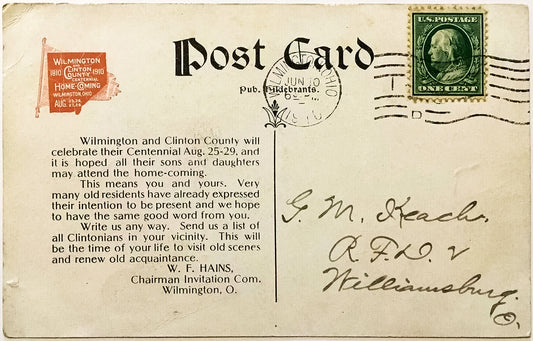 WILMINGTON
AND
1810 CLINTON 1910
COUNTY
CENTENNIAL
HOME-COMING
WILMINGTON, OHIO
AUG.
Post Card
Pub. Hildebrants.
WILMINGTON, OHIO
JUN 10
1910
U.S. POSTAGE
ONE CENT
D
Wilmington and Clinton County will
celebrate their Centennial Aug. 25-29, and
it is hoped all their sons and daughters
may attend the home-coming.
This means you and yours. Very
many old residents have already expressed
their intention to be present and we hope
to have the same good word from you.
Write us any way. Send us a list of
all Clintonians in your vicinity. This will
be the time of your life to visit old scenes
and renew old acquaintance.
W. F. HAINS,
Chairman Invitation Com.
Wilmington, O.
G. M. Keach.
R.F.D. 2
Williamsburg.
O.